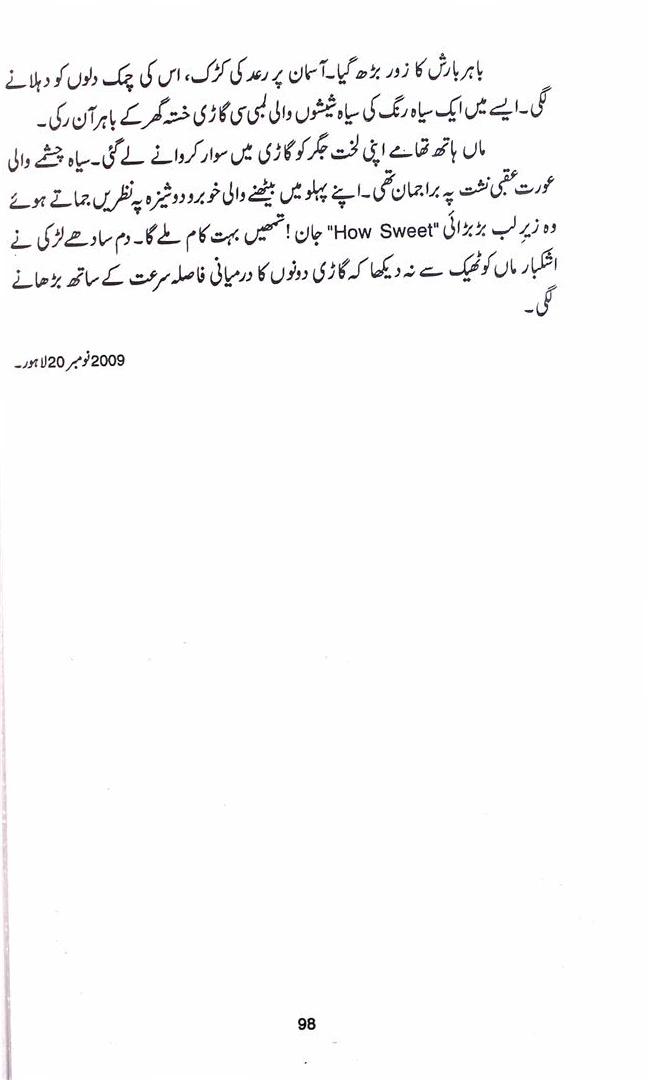 باہر بارش کا زور بڑھ گیا۔ آسمان پر رعد کی کڑک، اس کی چمک دلوں کو دہلانے
لگی۔ ایسے میں ایک سیاہ رنگ کی سیاہ شیشوں والی لمبی سی گاڑی خستہ گھر کے باہر آن رکی۔
ماں ہاتھ تھامے اپنی لخت جگر کو گاڑی میں سوار کروانے لے گئی۔ سیاہ چشمے والی
عورت عقبی نشت پہ براجمان تھی۔ اپنے پہلو میں بیٹھنے والی خوبرو دوشیزہ پہ نظریں جماتے ہوئے
وہ زیرِ لب بڑبڑائی "How Sweet" جان! تمھیں بہت کام ملے گا۔ دم سادھے لڑکی نے
اشکبار ماں کو ٹھیک سے نہ دیکھا کہ گاڑی دونوں کا درمیانی فاصلہ سرعت کے ساتھ بڑھانے
لگی۔
2009 نومبر 20 لاہور۔
98